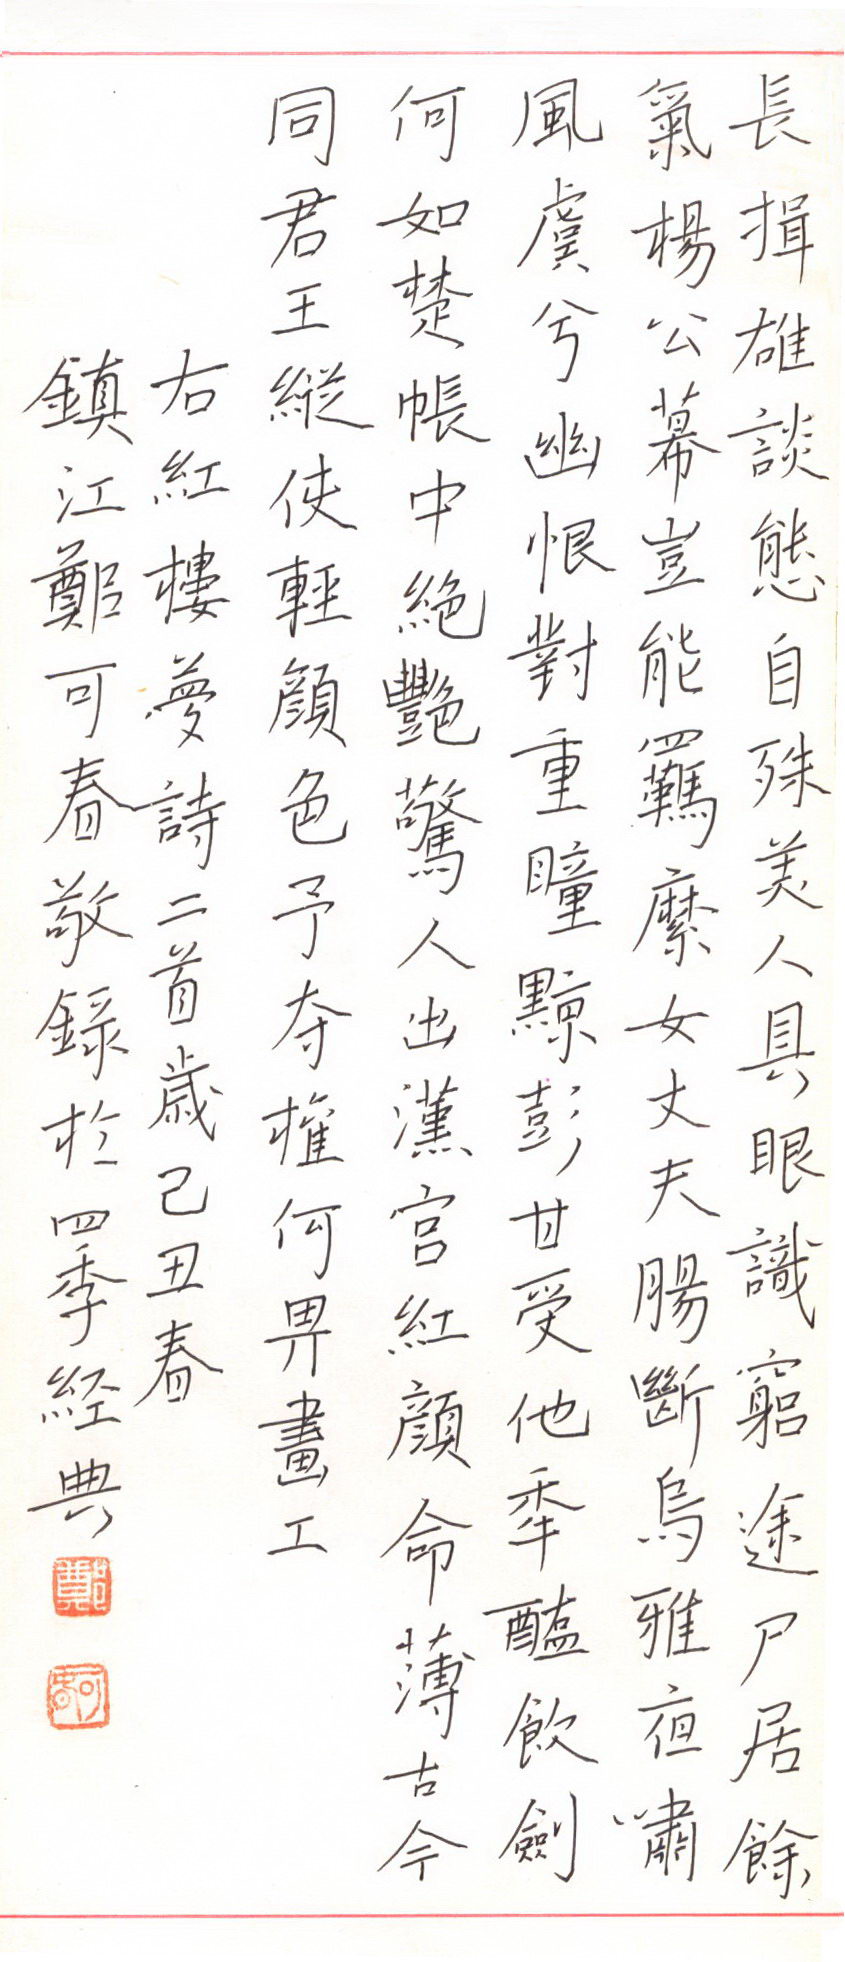 長揖雄談態自殊美人具眼識窮途尸居餘
氣楊公幕豈能羈縻女丈夫腸斷烏騅夜嘯
風虞兮幽恨對重瞳黥彭甘受他年醢飲劍
何如楚帳中絕艷驚人出漢宮紅顏命薄古今
同君王縱使輕顏色予奪權何畀畫工
右紅樓夢詩二首歲己丑春
鎮江鄭可春敬錄於四季経典
鄭
可春